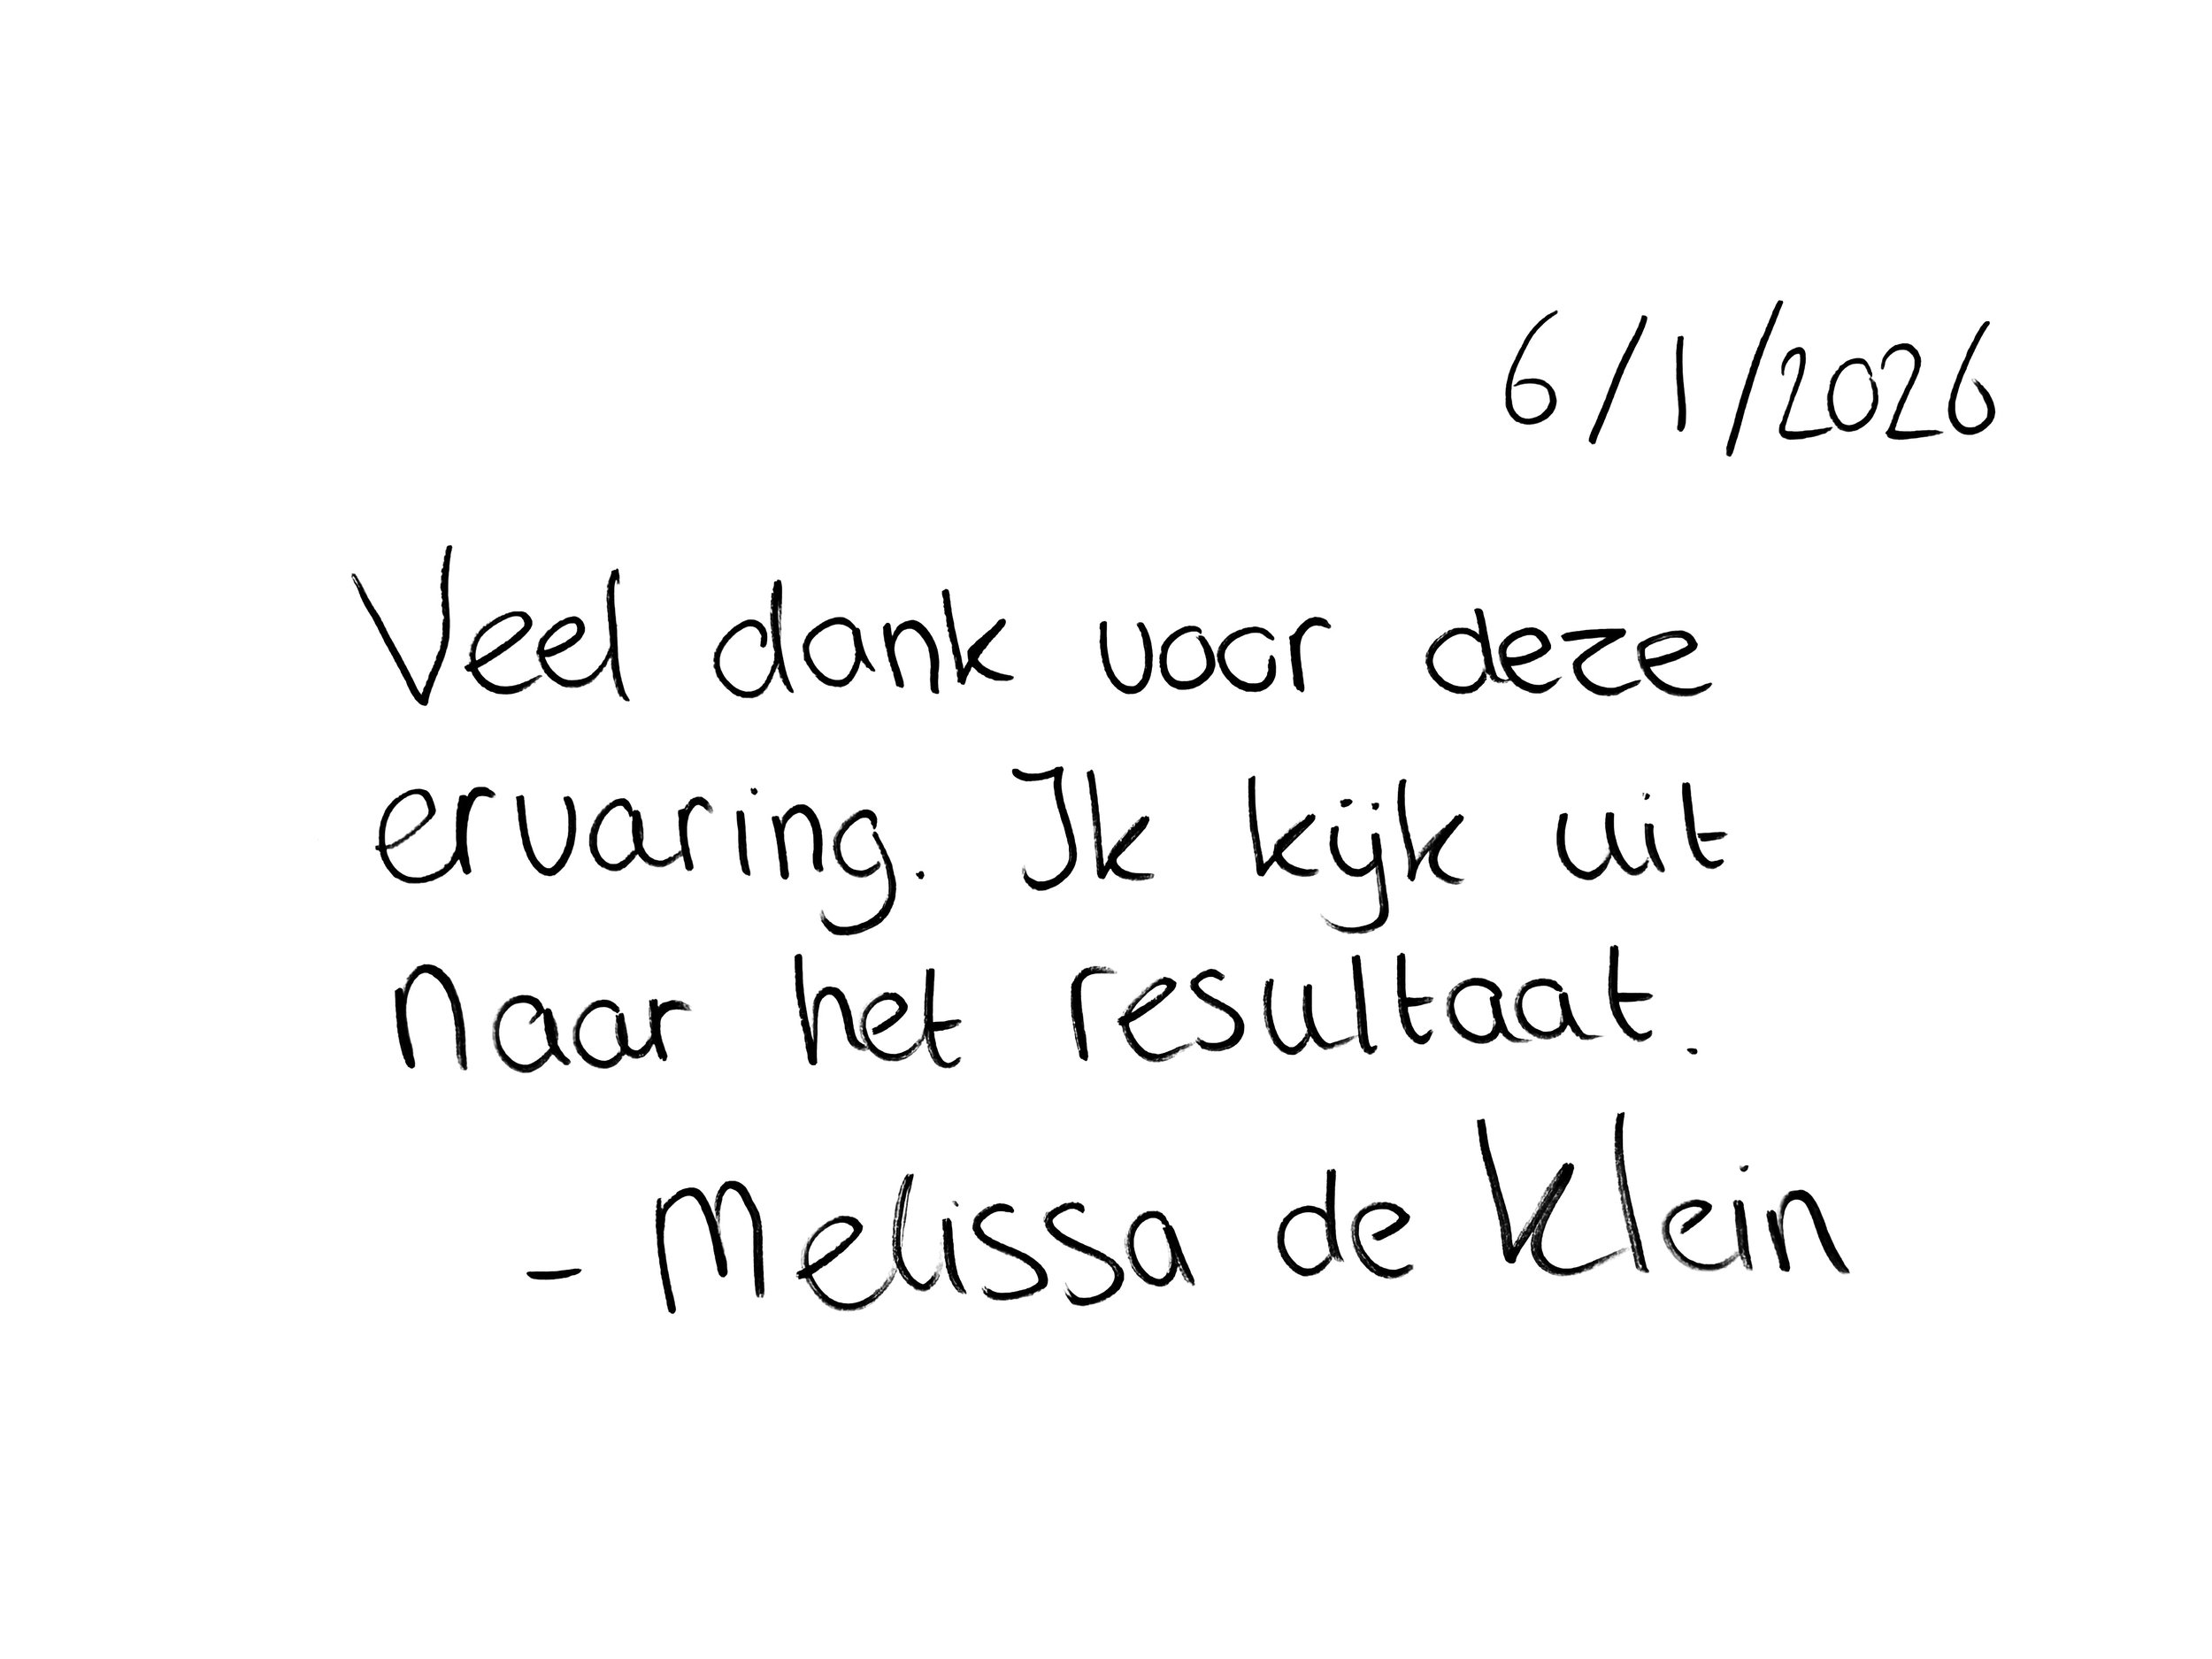 6/1/2026
Veel dank voor deze
ervaring. Ik kijk uit
naar het resultaat.
- Melissa de Klein